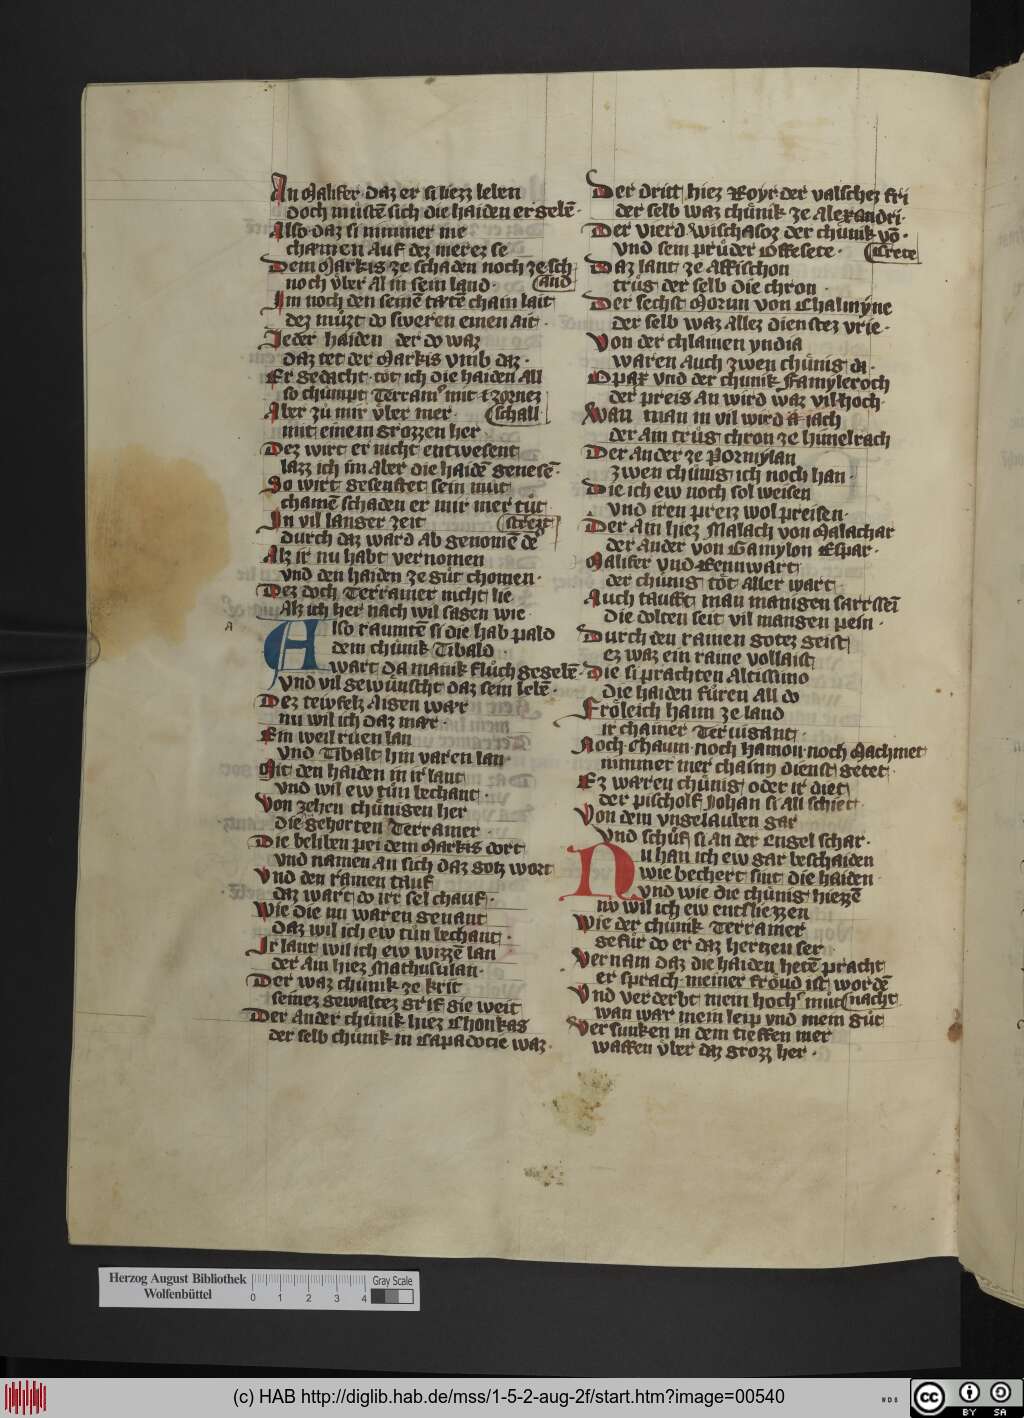 An Malifer daz er si liezz leben
doch mustē sich die haiden ergebē·
Also daz si nimmer me
chamen Auf dez merez se
Dem Markis ze schaden noch ze sch
noch vber Al in sein land· and
Im noch den seinē tatē chain lait
dez můzt do sweren einen ait·
Jeder haiden der do waz
daz tet der Markis vmb daz·
Er gedacht tòt ich die haiden All
so chumpt Terram̄ mit zornez
Aber zů mir vber mer· schall
mit einem grozzen her
Dez wirt er nicht entwesent
lazz ich im Aber die haidē genesē·
So wirt gesenftet sein můt
chamē schaden er mir mer tůt
In vil langer zeit streit
durch daz ward ab genomē d
Alz ir nu habt vernomen
vnd den haiden ze gůt chomen·
Dez doch Terramer nicht lie
Alz ich her nach wil sagen wie·
Also raumtē si die hab pald
dem chůnik Tibald·
wart da manik flůch gegebē·
vnd vil gewunscht daz sein lebē·
Dez tewfelz Aigen wær
nu wil ich daz mær·
Ein weil ruen lan
vnd Tibalt hin varen lan·
Mit den haiden in ir lant
vnd wil ew tůn bechant·
Von zehen chůnigen her
die gehorten Terramer·
Die beliben pei dem Markis dort
vnd namen An sich daz gotz wort
Vnd den rainen tauf
daz wart do irr sel chauf·
Wie die nu waren genant
daz wil ich ew tůn bechant·
Ir lant wil ich ew wizzē lan
der Ain hiez Mathusalan·
Der waz chůnik ze krit
seinez gewaltez grif gie weit
Der Ander chůnik hiez Chonkas
der selb chůnik in Capadocie waz·
Der dritt hiez Royr der valschez fri
der selb waz chůnik ze Alexandri·
Der vierd Wischasor der chůnik vō·
vnd sein průder Offesete· Crete
Daz lant ze Affischon
trůg der selb die chron·
Der sechst Morun von Chalmyne
der selb waz Allez dienstez vrie·
Von der chlainen yndia
waren auch zwen chůnig da·
Opar vnd der chunik Famyleroch
der preis An wird waz vil hoch·
Wan man in vil wird a iach
der Ain trůg chron ze hunelrach
Der Ander ze Pormylan
zwen chůnig ich noch han·
Die ich ew noch sol weisen
vnd iren preiz wol preisen·
Der Ain hiez Malach von Malachar
der ander von Gamylon Espar·
Malifer vnd Rennwart
der chůnig tòt aller wart
Auch taufft man manigen sarrstēi
die dolten seit vil mangen pein·
Durch den rainen gotez geist
ez waz ein raine vollaist
Die si prachten Altissimo
die haiden fůren All do
Fròleich haim ze land
ir chainer Teruigant·
Noch Chaum noch Hamon noch Machmet
nimmer mer chainn dienst getet·
Ez waren chůnig oder ir diet
der pischolf Johan si All schiet
Von dem vngelauben gar
vnd schůf si an der Engel schar·
Nu han ich ew gar bescheiden
wie bechert sint die haiden·
vnd wie die chůnig hiezzē
nv wil ich ew entsliezzen
Wie der chůnik Terramer
gefůr do er daz hertzen ser
Vernam daz die haiden hetē pracht
er sprach meiner fròud ist wordē
Vnd verderbt mein hoch̄ můt nacht
wan wær mein leip vnd mein gůt
Versunken in dem tieffen mer
waffen vber daz grozz her·
Herzog August Bibliothek
Wolfenbüttel
0 1 2 3 4
Gray Scale
(c) HAB http://diglib.hab.de/mss/1-5-2-aug-2f/start.htm?image=00540
cc BY SA